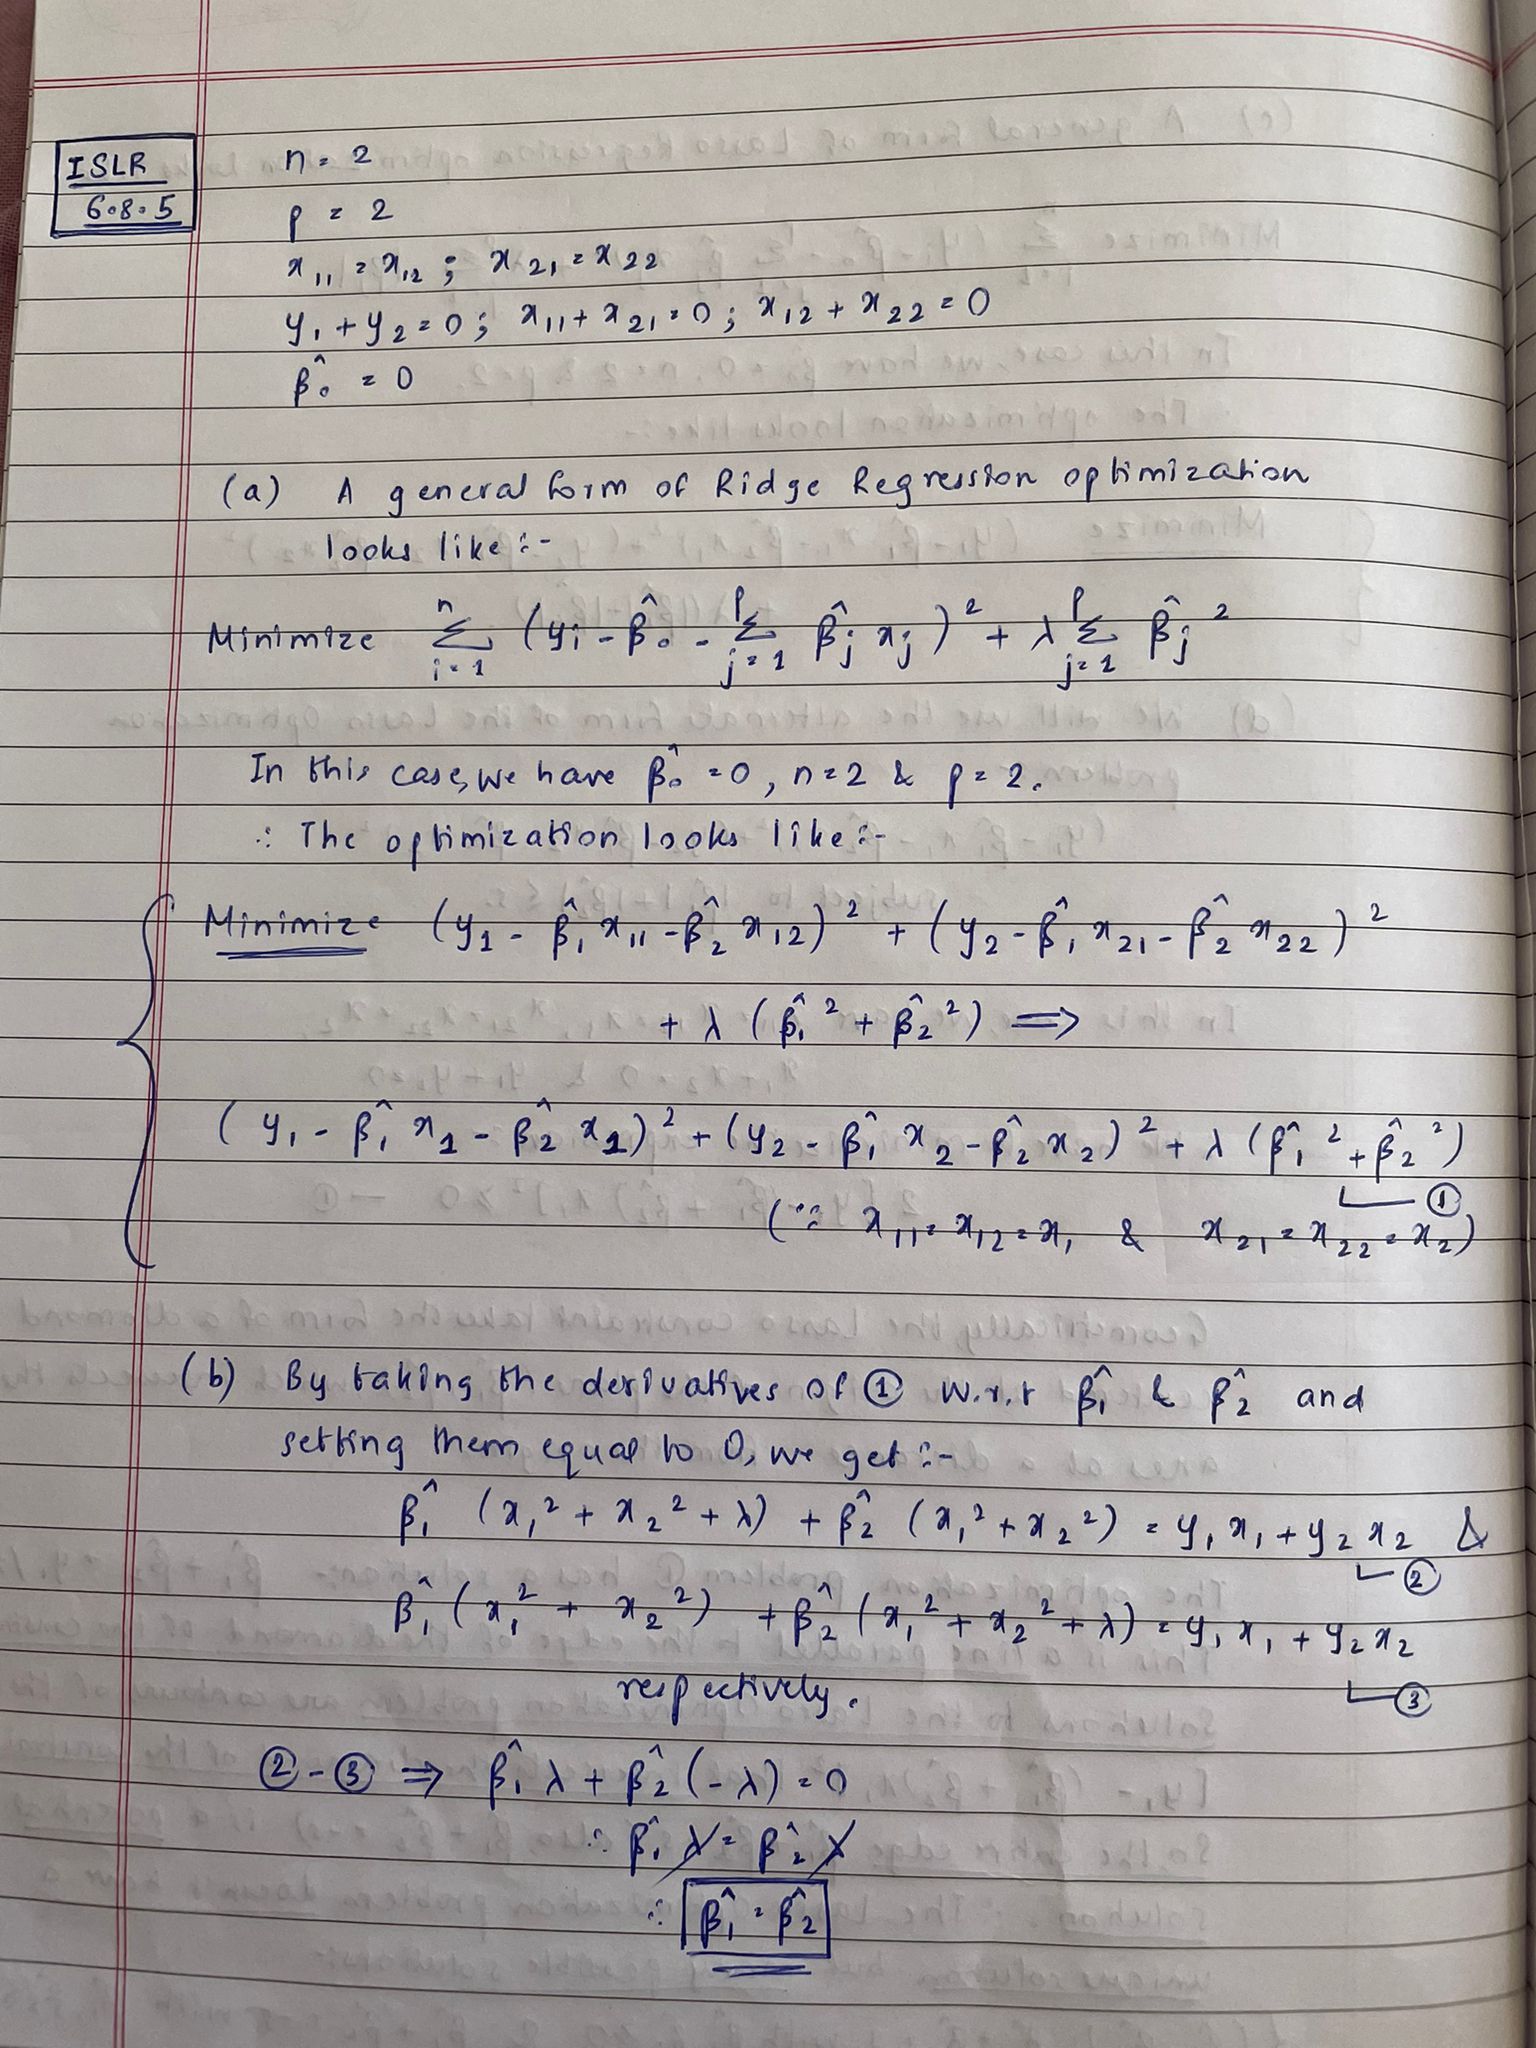 ISLR
6.8.5
n = 2
p = 2
x₁₁ = x₁₂ ; x₂₁ = x₂₂
y₁ + y₂ = 0 ; x₁₁ + x₂₁ = 0 ; x₁₂ + x₂₂ = 0
β̂₀ = 0
(a) A general form of Ridge Regression optimization
looks like :-
Minimize Σᵢ₌₁ⁿ (yᵢ - β̂₀ - Σⱼ₌₁ᵖ β̂ⱼ xⱼ)² + λ Σⱼ₌₁ᵖ β̂ⱼ²
In this case, we have β̂₀ = 0, n = 2 & p = 2.
∴ The optimization looks like :-
Minimize (y₁ - β̂₁ x₁₁ - β̂₂ x₁₂)² + (y₂ - β̂₁ x₂₁ - β̂₂ x₂₂)²
+ λ (β̂₁² + β̂₂²) ⟹
(y₁ - β̂₁ x₁ - β̂₂ x₁)² + (y₂ - β̂₁ x₂ - β̂₂ x₂)² + λ (β̂₁² + β̂₂²)
①
(∵ x₁₁ = x₁₂ = x₁ & x₂₁ = x₂₂ = x₂)
(b) By taking the derivatives of ① w.r.t β̂₁ & β̂₂ and
setting them equal to 0, we get :-
β̂₁ (x₁² + x₂² + λ) + β̂₂ (x₁² + x₂²) = y₁ x₁ + y₂ x₂ &
②
β̂₁ (x₁² + x₂²) + β̂₂ (x₁² + x₂² + λ) = y₁ x₁ + y₂ x₂
③
respectively.
② - ③ ⟹ β̂₁ λ + β̂₂ (-λ) = 0
∴ β̂₁ λ = β̂₂ λ
∴ β̂₁ = β̂₂